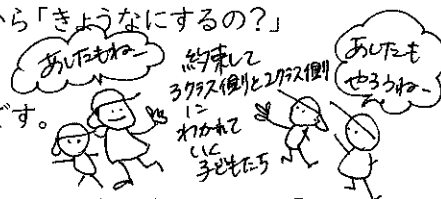 ら「きょうなにするの？」
あしたもねー
約束して
3クラス側と2クラス側
に
わかれて
いく
子どもたち
あしたも
やろうねー
です。